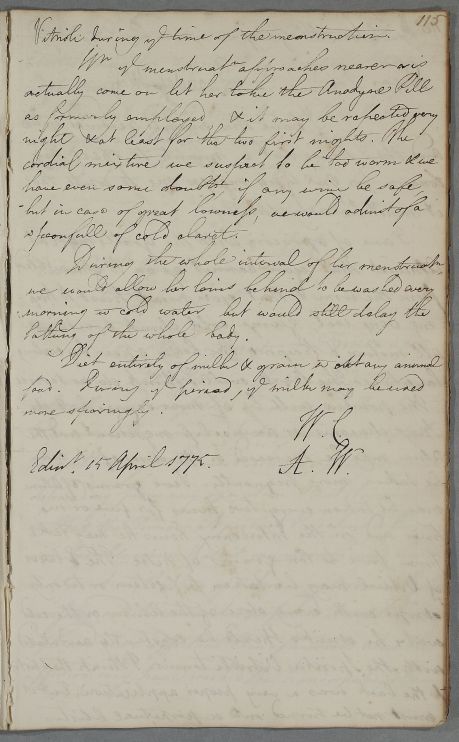 115
Vitriol: during yᵉ time of the menstruation.
Wⁿ yᵉ menstruatⁿ approaches nearer or is
actually come on let her take the Anodyne Pill
as formerly employed & it may be repeated every
night & at least for the two first nights. The
cordial mixture we suspect to be too warm & we
have even some doubts if any wine be safe,
but in case of great lowness, we would admit of a
spoonfull of cold claret.
During the whole interval of her menstruatⁿ
we would allow her loins behind to be washed every
morning w cold water but would still delay the
bathing of the whole body.
Diet entirely of milk & grain wᵗout any animal
food. During yᵉ period, yᵉ milk may be used
more sparingly.
W. C
Edinʳ. 15 April 1775. A. W.